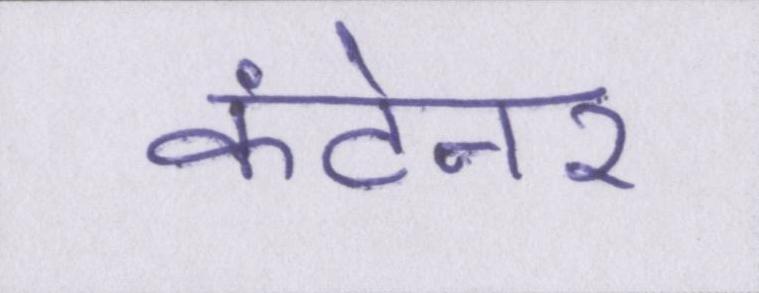 कंटेनर